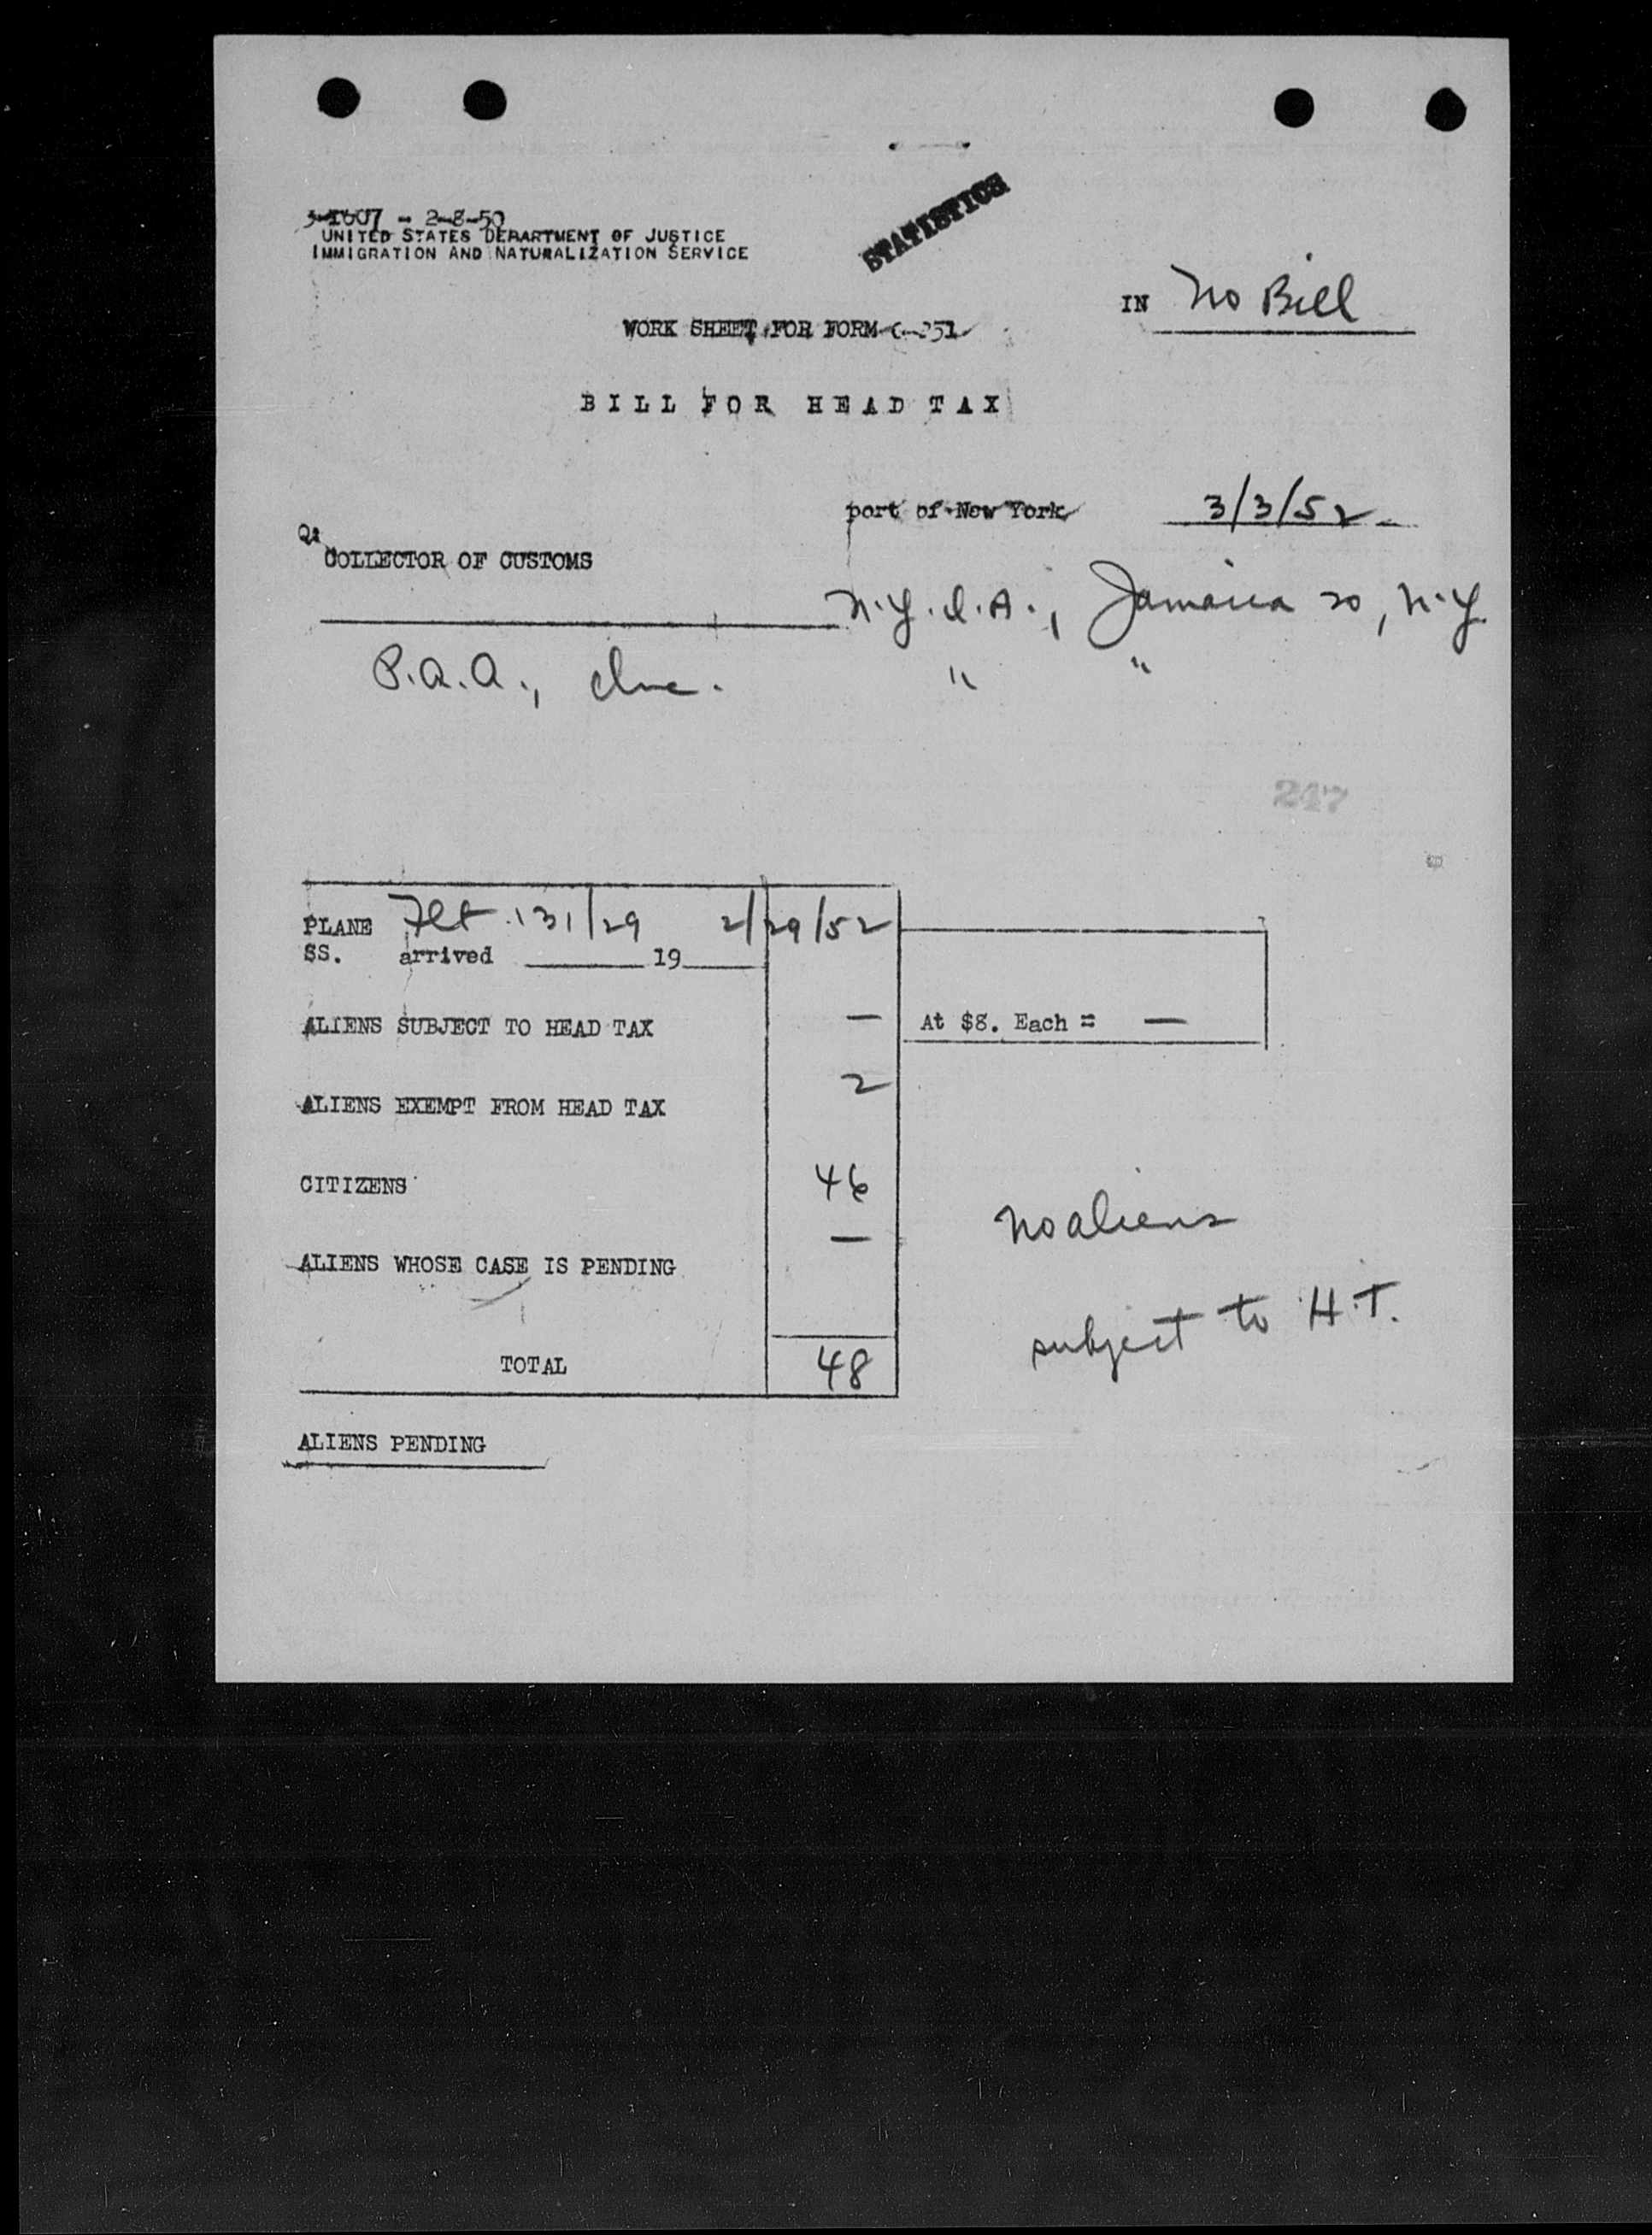 3-1607 - 2-8-50
UNITED STATES DEPARTMENT OF JUSTICE
IMMIGRATION AND NATURALIZATION SERVICE
STATISTICS
IN No Bill
WORK SHEET FOR FORM -251
BILL FOR HEAD TAX
port of New York 3/3/52
COLLECTOR OF CUSTOMS
N.Y.I.A., Jamaica 20, N.Y.
P.A.A., Inc. " "
247
PLANE Flt 131/29 2/29/52
SS. arrived 19
ALIENS SUBJECT TO HEAD TAX — At $8. Each = —
ALIENS EXEMPT FROM HEAD TAX 2
CITIZENS 46
No aliens
ALIENS WHOSE CASE IS PENDING —
subject to H.T.
TOTAL 48
ALIENS PENDING